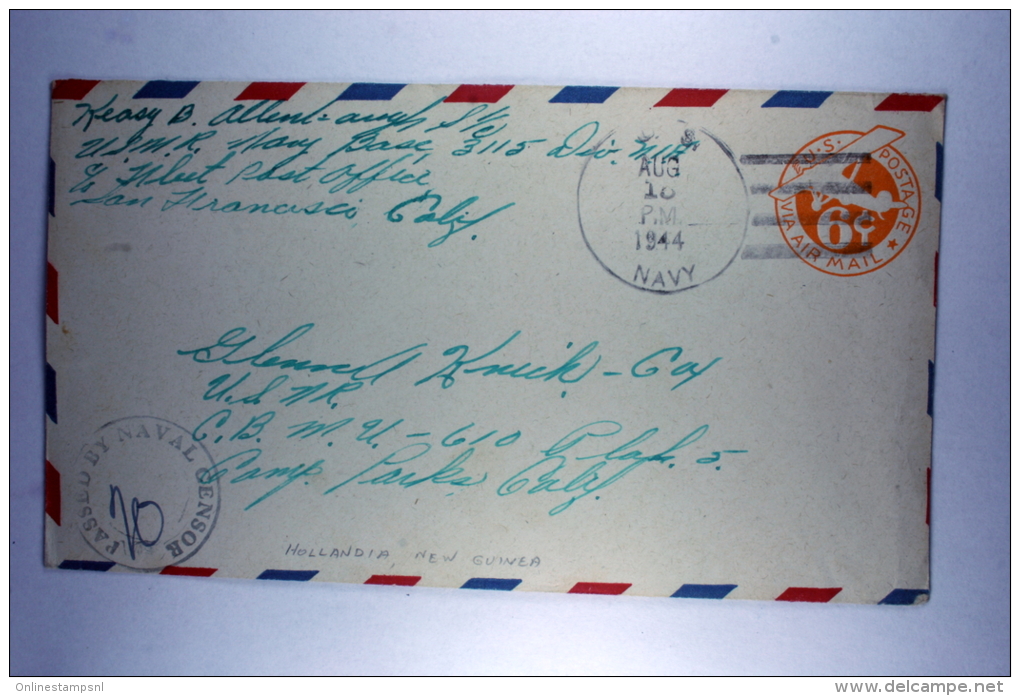 Keasy B. S 1/c
U.S.N.R. Navy Base, 3115 Div.
% Fleet Post Office
San Francisco, Calif.
U. S.
AUG
18
P.M.
1944
NAVY
U.S. POSTAGE
VIA AIR MAIL
6¢
Glenn Cox
U.S.N.R.
C.B.M.U. - 610 5.
Camp Parks Calif.
PASSED BY NAVAL CENSOR
HOLLANDIA, NEW GUINEA
Onlinestampsnl
www.delcampe.net